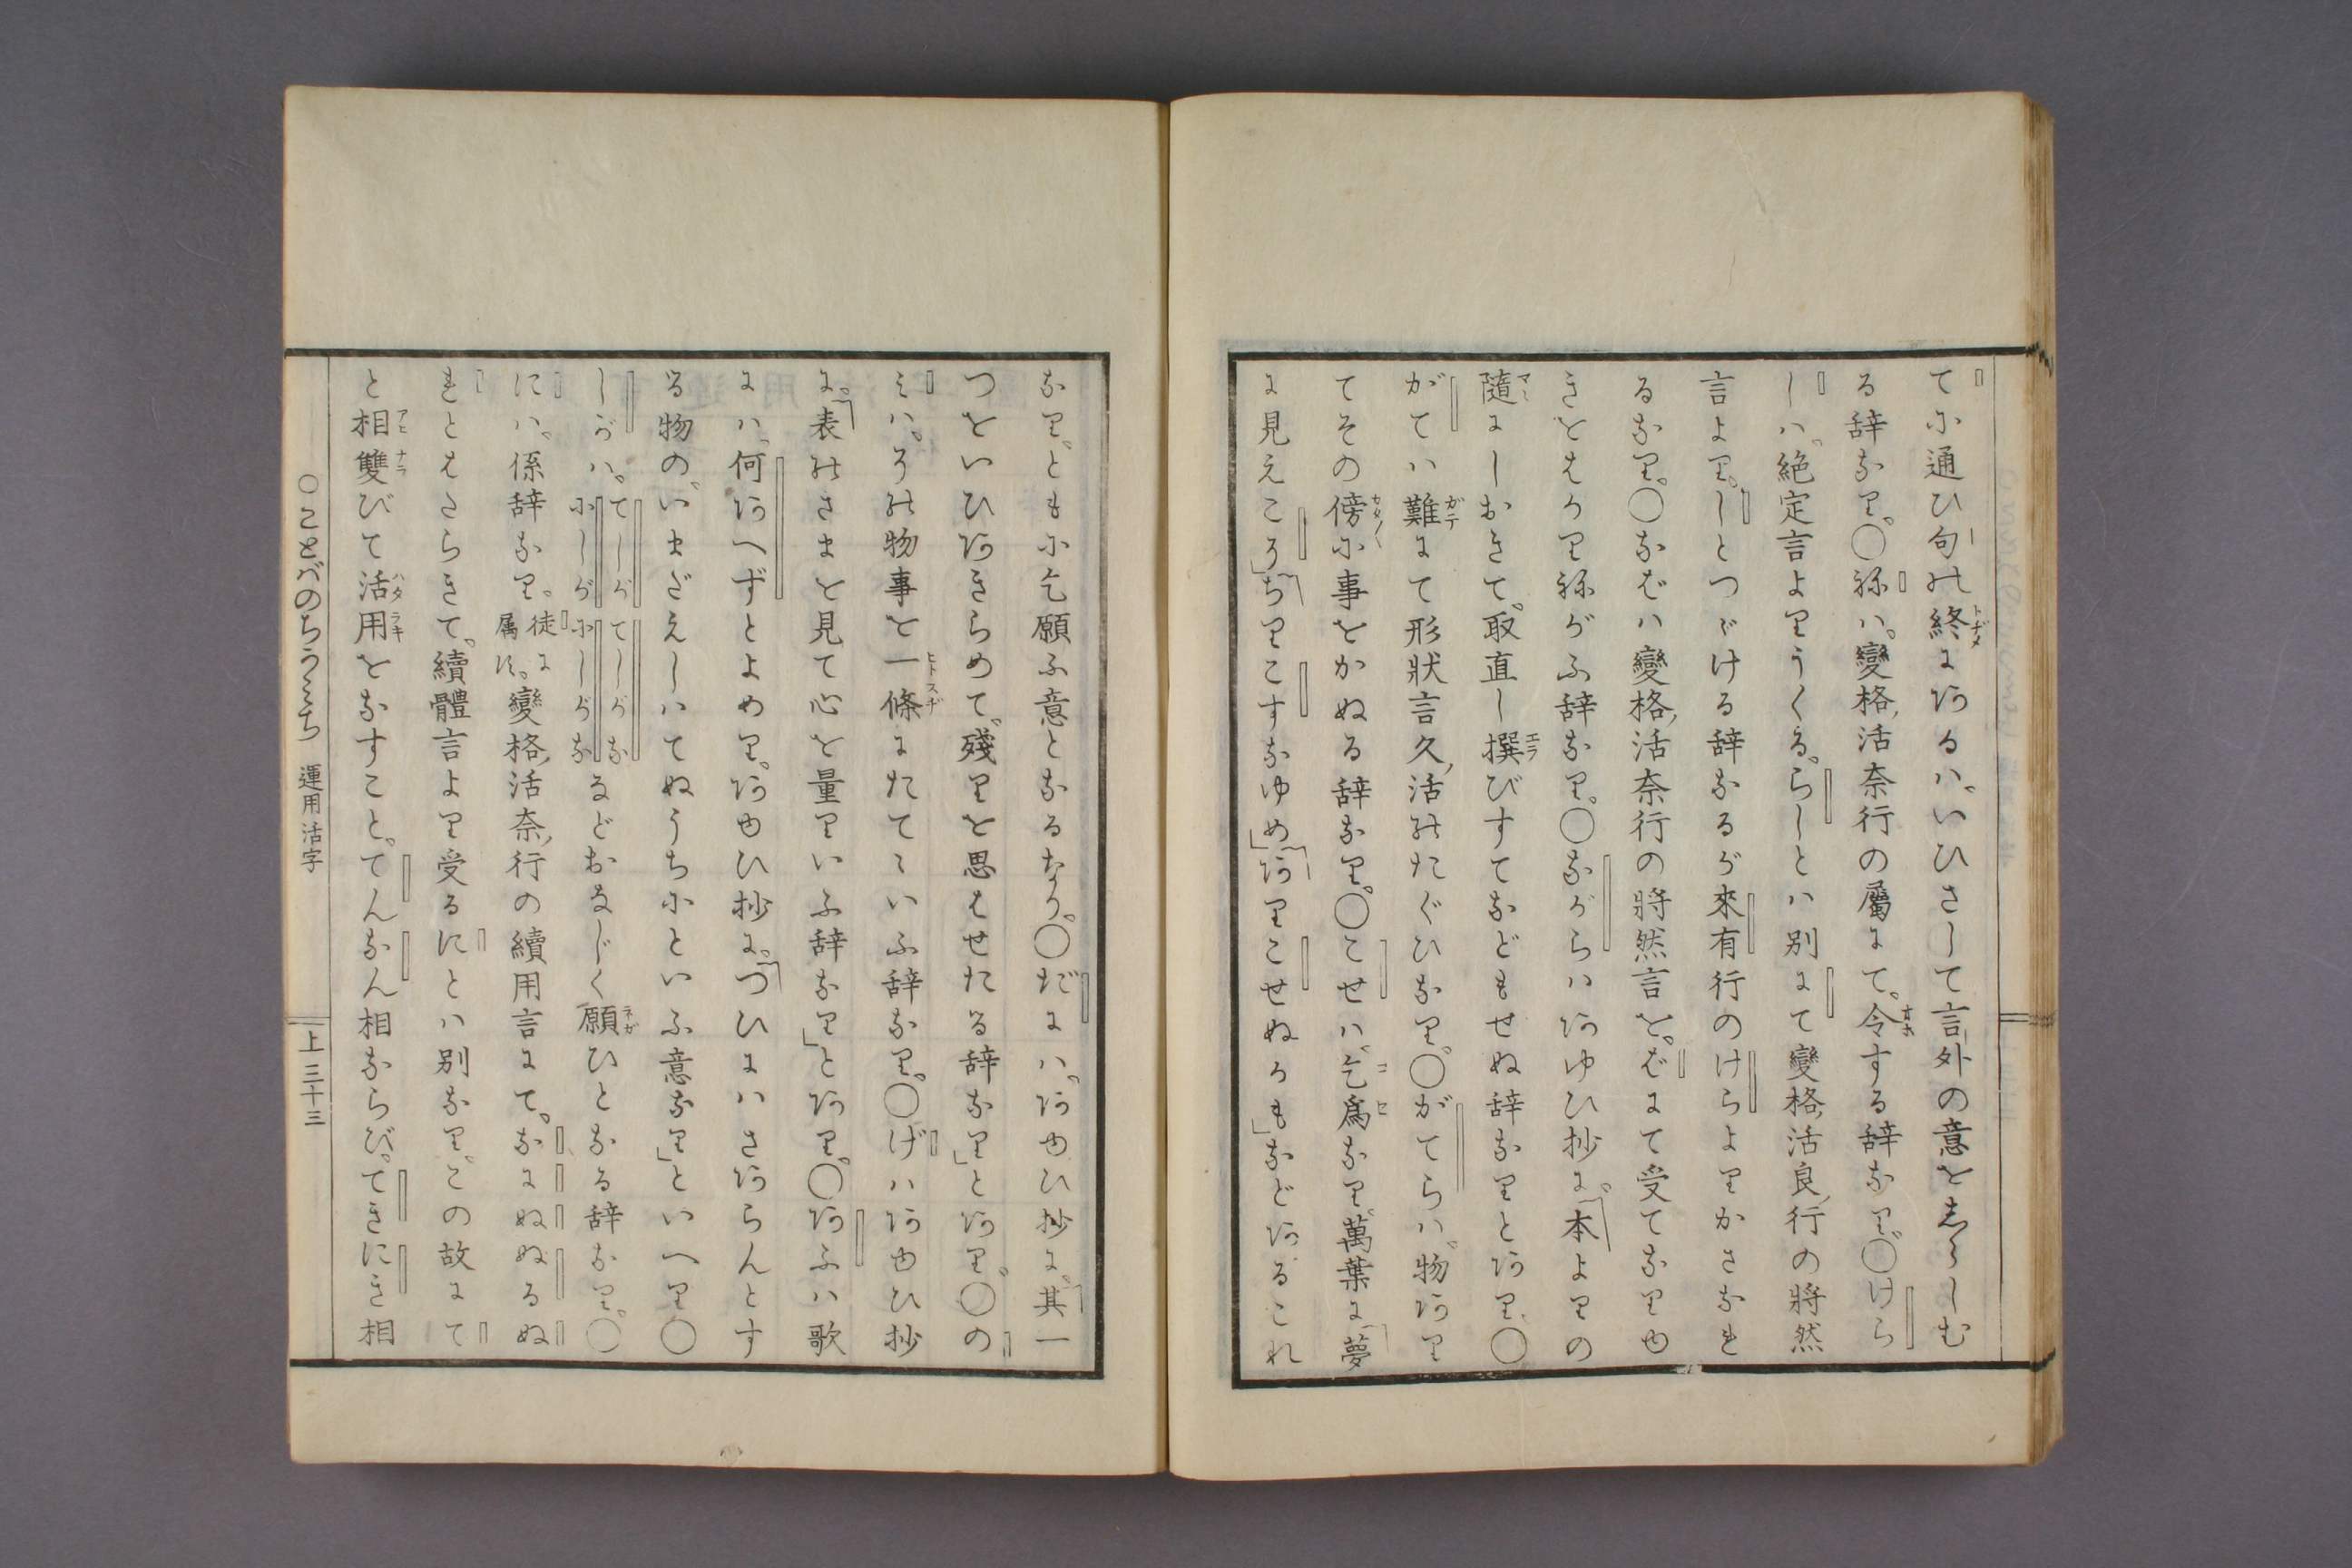 てに通ひ句の終にあるハいひさして言外の意をしらしむ
る辞なり。〇ねハ。變格活奈行の屬にて。令する辞なり。〇けら
しハ。絶定言よりうくる。らしとハ別にて變格活良行の將然
言より。しとつゞける辞なるが來有行のけらよりかさなれ
るなり。〇なばハ變格活奈行の將然言を。ばにて受てなりや
きとはかりねがふ辞なり。〇ながらハあゆひ抄に。「本よりの
隨にしおきて。取直し撰びすてなどもせぬ辞なりとあり〇
がてハ難にて形狀言久活のたぐひなり。〇がてらハ物あり
てその傍に事をかぬる辞なり。〇こせハ乞爲なり萬葉に「夢
に見えこそ」「ちりこすなゆめ」「ありこせぬかも」などあるこれ
なり。ともに乞願ふ意となるなり。〇だにハ。あゆひ抄に。「其一
つをいひあきらめて。殘りを思はせたる辞なり」とあり。〇の
ミハ。その物事を一條にたてゝいふ辞なり。〇げハあゆひ抄
に。「表のさまを見て心を量りいふ辞なり」とあり。〇あふハ歌
にハ何あへずとよめり。あゆひ抄に。「つひにハさあらんとす
る物のいまだえしハてぬうちにといふ意なり」といへり〇
しがハ。てしがてしがなにしがにしがななどおなじく願ひとなる辞なり。〇
にハ。係辞なり。徒に属す。變格活奈行の續用言にて。なにぬぬるぬ
れとはたらきて。續體言より受るにとハ別なり。この故にて
と相雙びて活用をなすこと。てんなん相ならび。てきにき相
〇ことばのちかミち 運用活字 上三十三